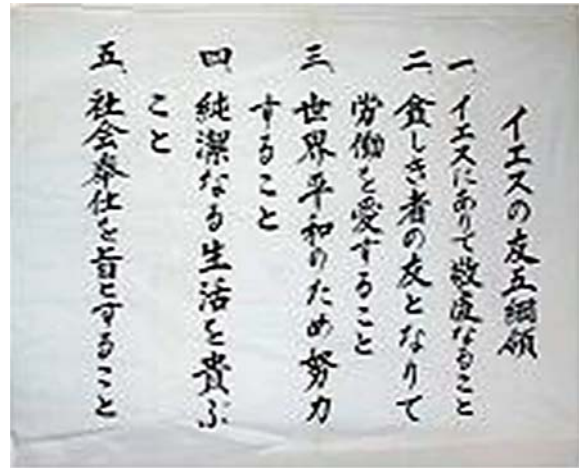 イエスの友五綱領
一、イエスにありて敬虔なること
二、貧しき者の友となりて
労働を愛すること
三、世界平和のため努力
すること
四、純潔なる生活を貴ぶ
こと
五、社会奉仕を旨とすること